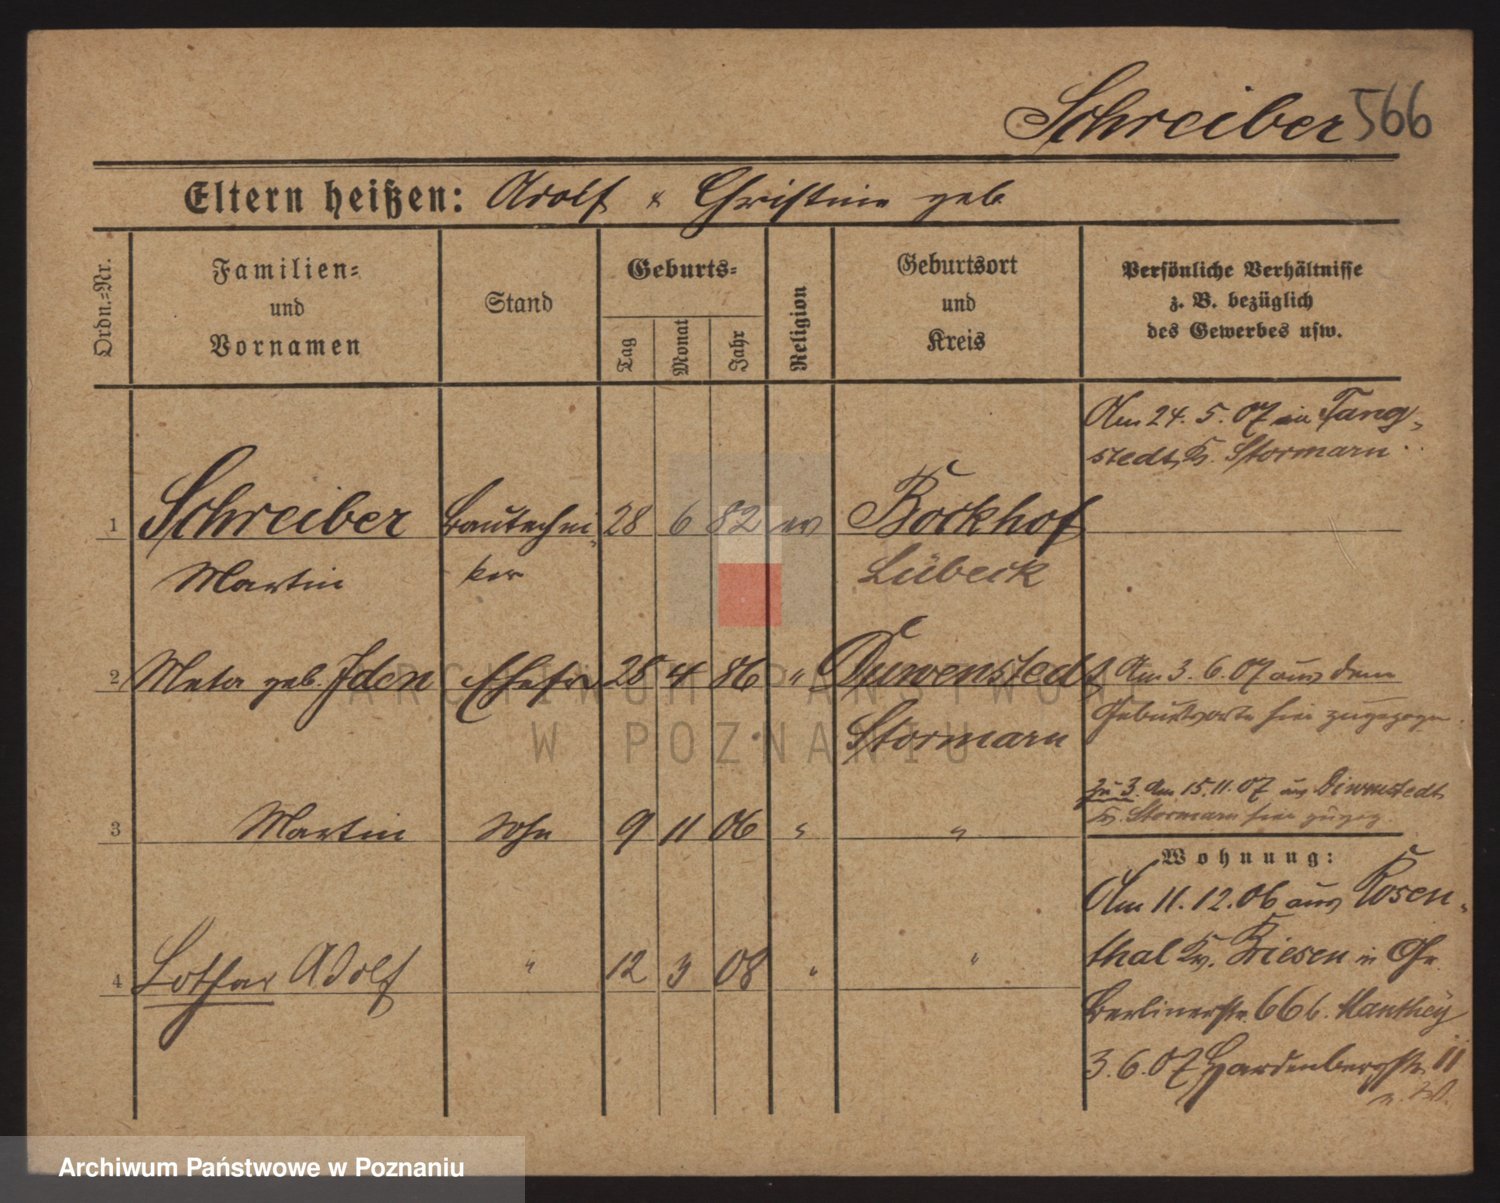 Schreiber 566
Eltern heißen: Adolf & Christine geb
Ordn.=Nr.
Familien=
und
Vornamen
Stand
Geburts=
Tag
Monat
Jahr
Religion
Geburtsort
und
Kreis
Persönliche Verhältnisse
z. B. bezüglich
des Gewerbes usw.
Am 24. 5. 07 in Tang-
stedt, Kr. Stormarn.
1 Schreiber Bautechni- 28 6 82 ev Bockhof
Martin ker Lübeck
2 Meta geb. Iden Ehefr 28 4 86 " Duwenstedt Am 3. 6. 07 aus dem
Stormarn Geburtsorte hier zugezogen.
zu 3. Am 15. 11. 07 aus Duwenstedt
Kr. Stormarn hier zugez.
3 Martin Sohn 9 11 06 " "
Wohnung:
Am 11. 12. 06 aus Rosen-
thal Kr. Briesen in Gr.
4 Lothar Adolf " 12 3 08 " "
Berlinerstr. 66 b. Manthey
3. 6. 07 Hardenbergstr. 11
ARCHIWUM PAŃSTWOWE
W POZNANIU
Archiwum Państwowe w Poznaniu